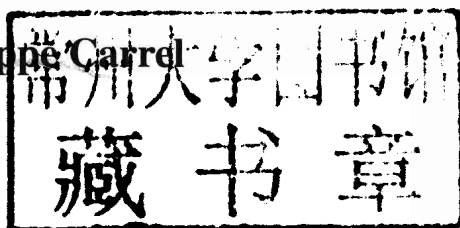 ppe Carrel
常州大学图书馆
藏书章